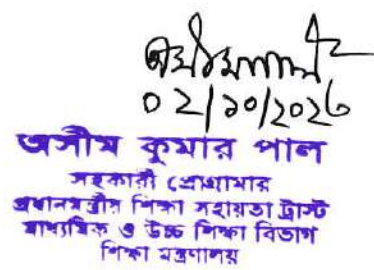 ০২/১০/২০২৩
অসীম কুমার পাল
সহকারী প্রোগ্রামার
প্রধানমন্ত্রীর শিক্ষা সহায়তা ট্রাস্ট
মাধ্যমিক ও উচ্চ শিক্ষা বিভাগ
শিক্ষা মন্ত্রণালয়